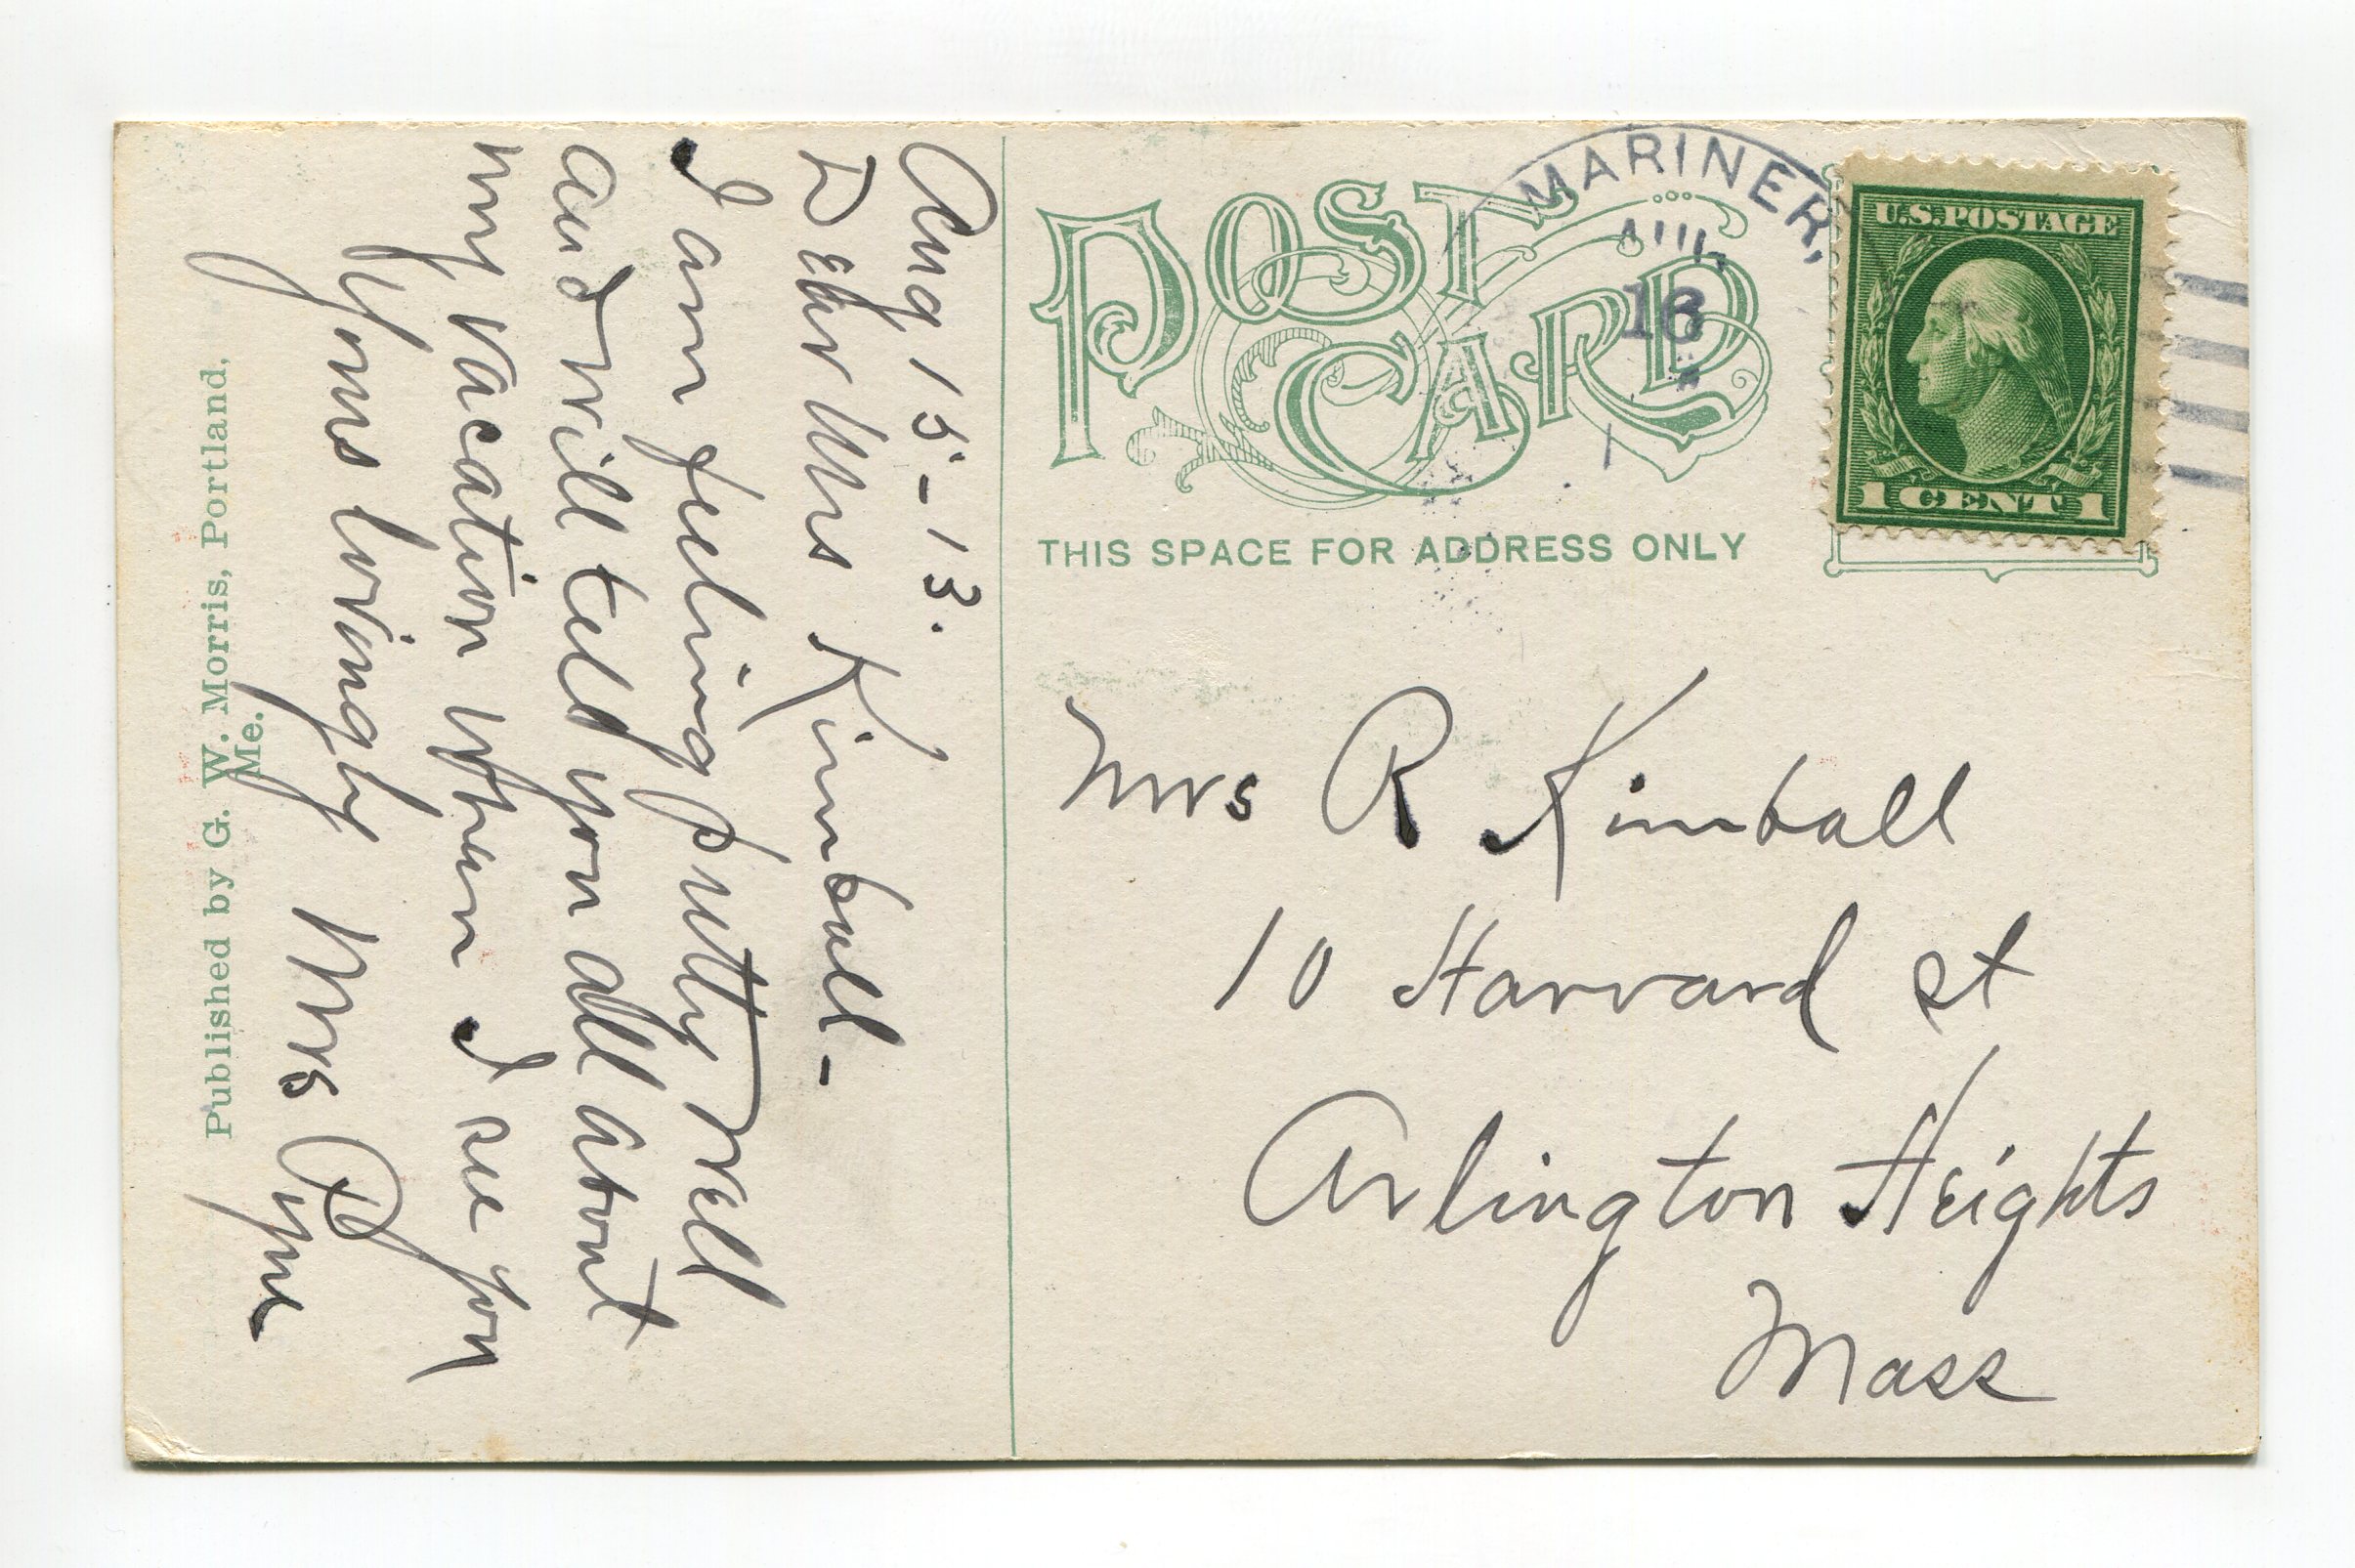 Aug 15 - 13.
Dear Mrs Kimball -
I am feeling pretty well
and will tell you all about
my vacation when I see you
Yours lovingly Mrs Pyne
Published by G. W. Morris, Portland,
Me.
POST CARD
THIS SPACE FOR ADDRESS ONLY
MARINER,
AUG
16
U.S. POSTAGE
1 CENT 1
Mrs R Kimball
10 Harvard st
Arlington Heights
Mass